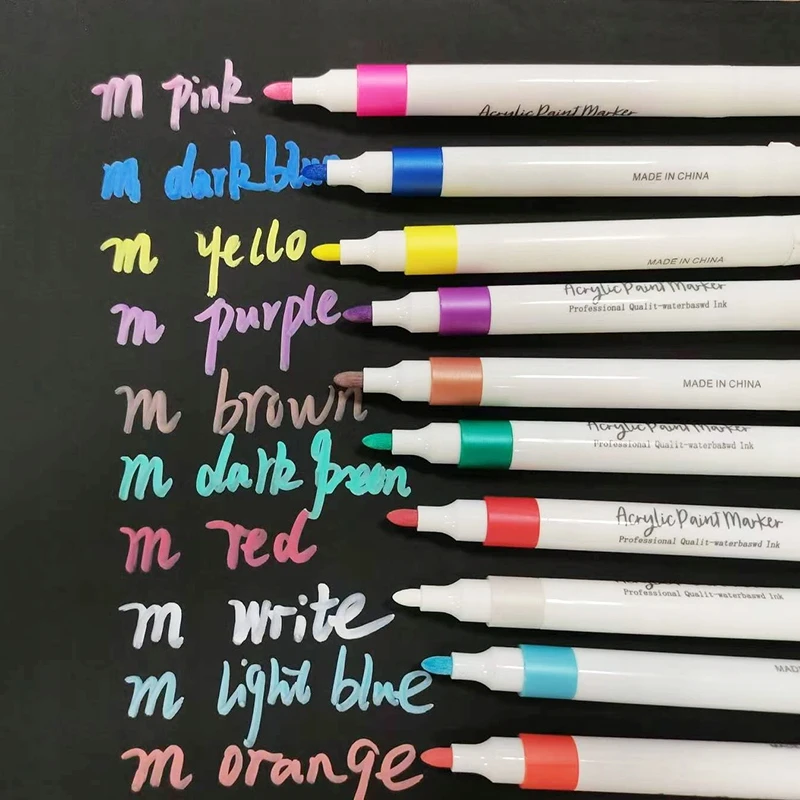 m pink
Acrylic Paint Marker
m dark blue
MADE IN CHINA
m yello
MADE IN CHINA
Acrylic Paint Marker
m purple
Professional Qualit-waterbaswd Ink
m brown
MADE IN CHINA
Acrylic Paint Marker
m dark green
Professional Qualit-waterbaswd Ink
m red
Acrylic Paint Marker
Professional Qualit-waterbaswd Ink
m write
Professional Qualit-waterbaswd Ink
m light blue
MADE
m orange